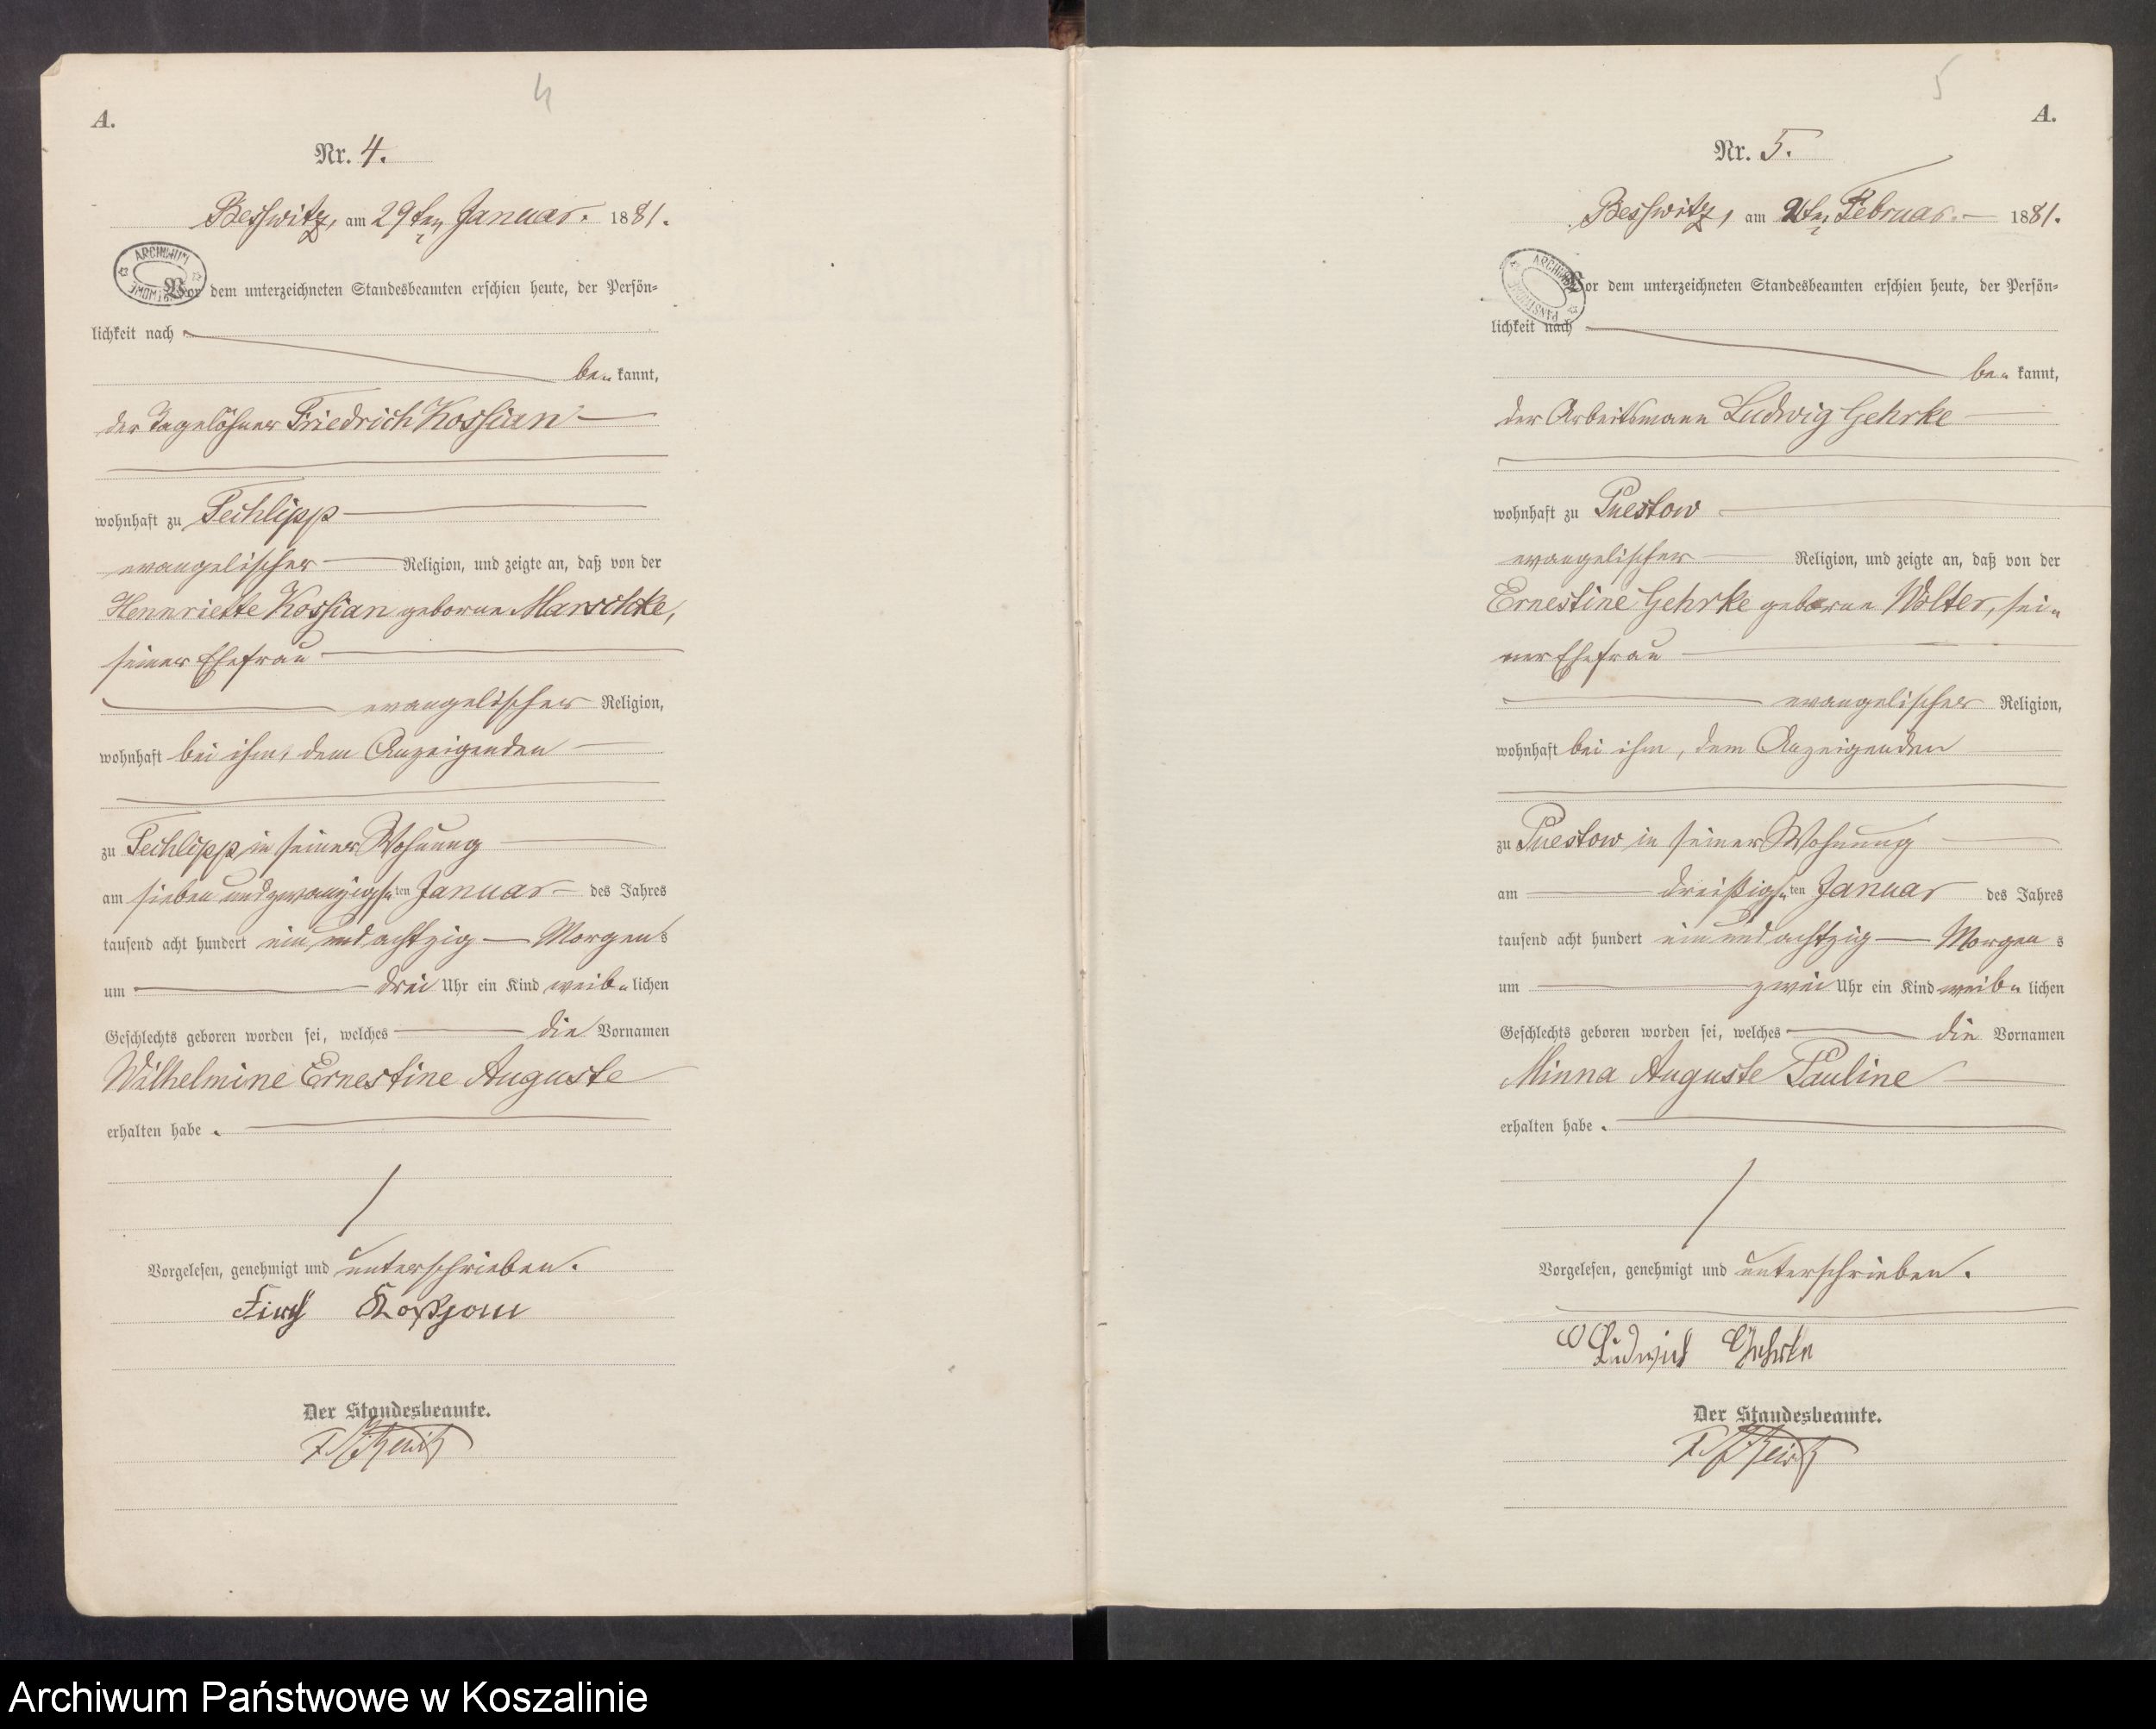 4
A.
Nr. 4.
Besswitz, am 29ten Januar. 1881.
ARCHIWUM
Vor dem unterzeichneten Standesbeamten erschien heute, der Persön=
lichkeit nach
be= kannt,
der Tagelöhner Friedrich Kossian
wohnhaft zu Techlipp
evangelischer Religion, und zeigte an, daß von der
Hennriette Kossian geborne Marschke,
seiner Ehefrau
evangelischer Religion,
wohnhaft bei ihm, dem Anzeigenden
zu Techlipp in seiner Wohnung
am sieben und zwanzigsten Januar des Jahres
tausend acht hundert ein und achtzig Morgens
um drei Uhr ein Kind weib=lichen
Geschlechts geboren worden sei, welches die Vornamen
Wilhelmine Ernestine Auguste
erhalten habe.
Vorgelesen, genehmigt und unterschrieben.
Der Standesbeamte.
5
A.
Nr. 5.
Besswitz, am 2ten Februar. 1881.
ARCHIWUM PAŃSTWOWE
Vor dem unterzeichneten Standesbeamten erschien heute, der Persön=
lichkeit nach
be= kannt,
der Arbeitsmann Ludwig Gehrke
wohnhaft zu Puestow
evangelischer Religion, und zeigte an, daß von der
Ernestine Gehrke geborne Wolter, sei=
ner Ehefrau
evangelischer Religion,
wohnhaft bei ihm, dem Anzeigenden
zu Puestow in seiner Wohnung
am dreißigsten Januar des Jahres
tausend acht hundert ein und achtzig Morgens
um zwei Uhr ein Kind weib=lichen
Geschlechts geboren worden sei, welches die Vornamen
Minna Auguste Pauline
erhalten habe.
Vorgelesen, genehmigt und unterschrieben.
Der Standesbeamte.
Archiwum Państwowe w Koszalinie